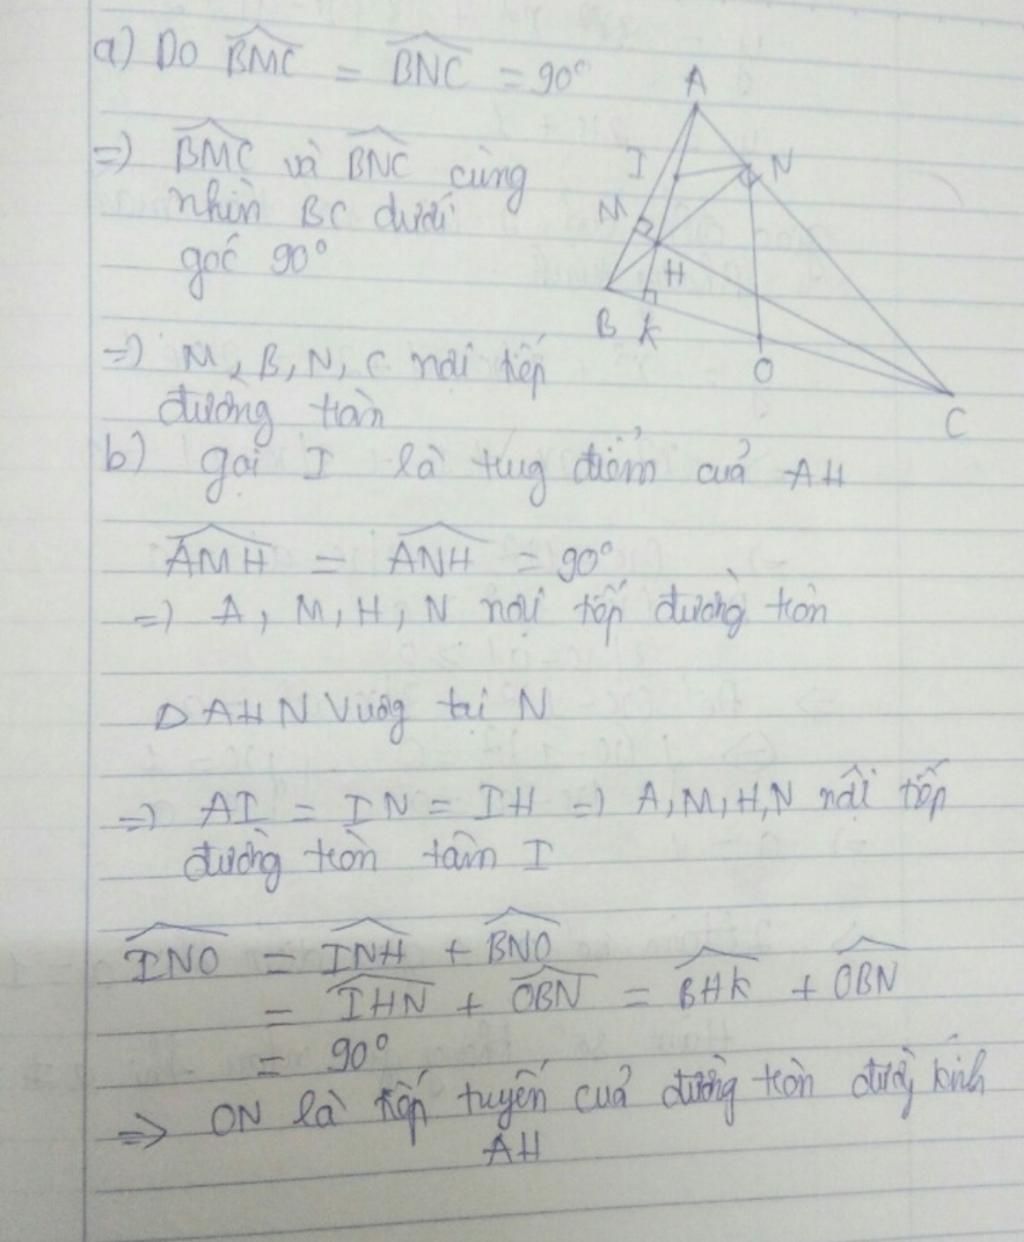 a) Do BMC = BNC = 90°
=> BMC và BNC cùng
nhìn BC dưới
góc 90°
=> M, B, N, C nội tiếp
đường tròn
b) gọi I là trug điểm của AH
AMH = ANH = 90°
=> A, M, H, N nội tiếp đường tròn
Δ AHN Vuôg tại N
=> AI = IN = IH => A, M, H, N nội tiếp
đường tròn tâm I
INO = INH + BNO
= IHN + OBN = BHK + OBN
= 90°
=> ON là tiếp tuyến của đường tròn đườg kính
AH
A
I
N
M
H
B
K
O
C